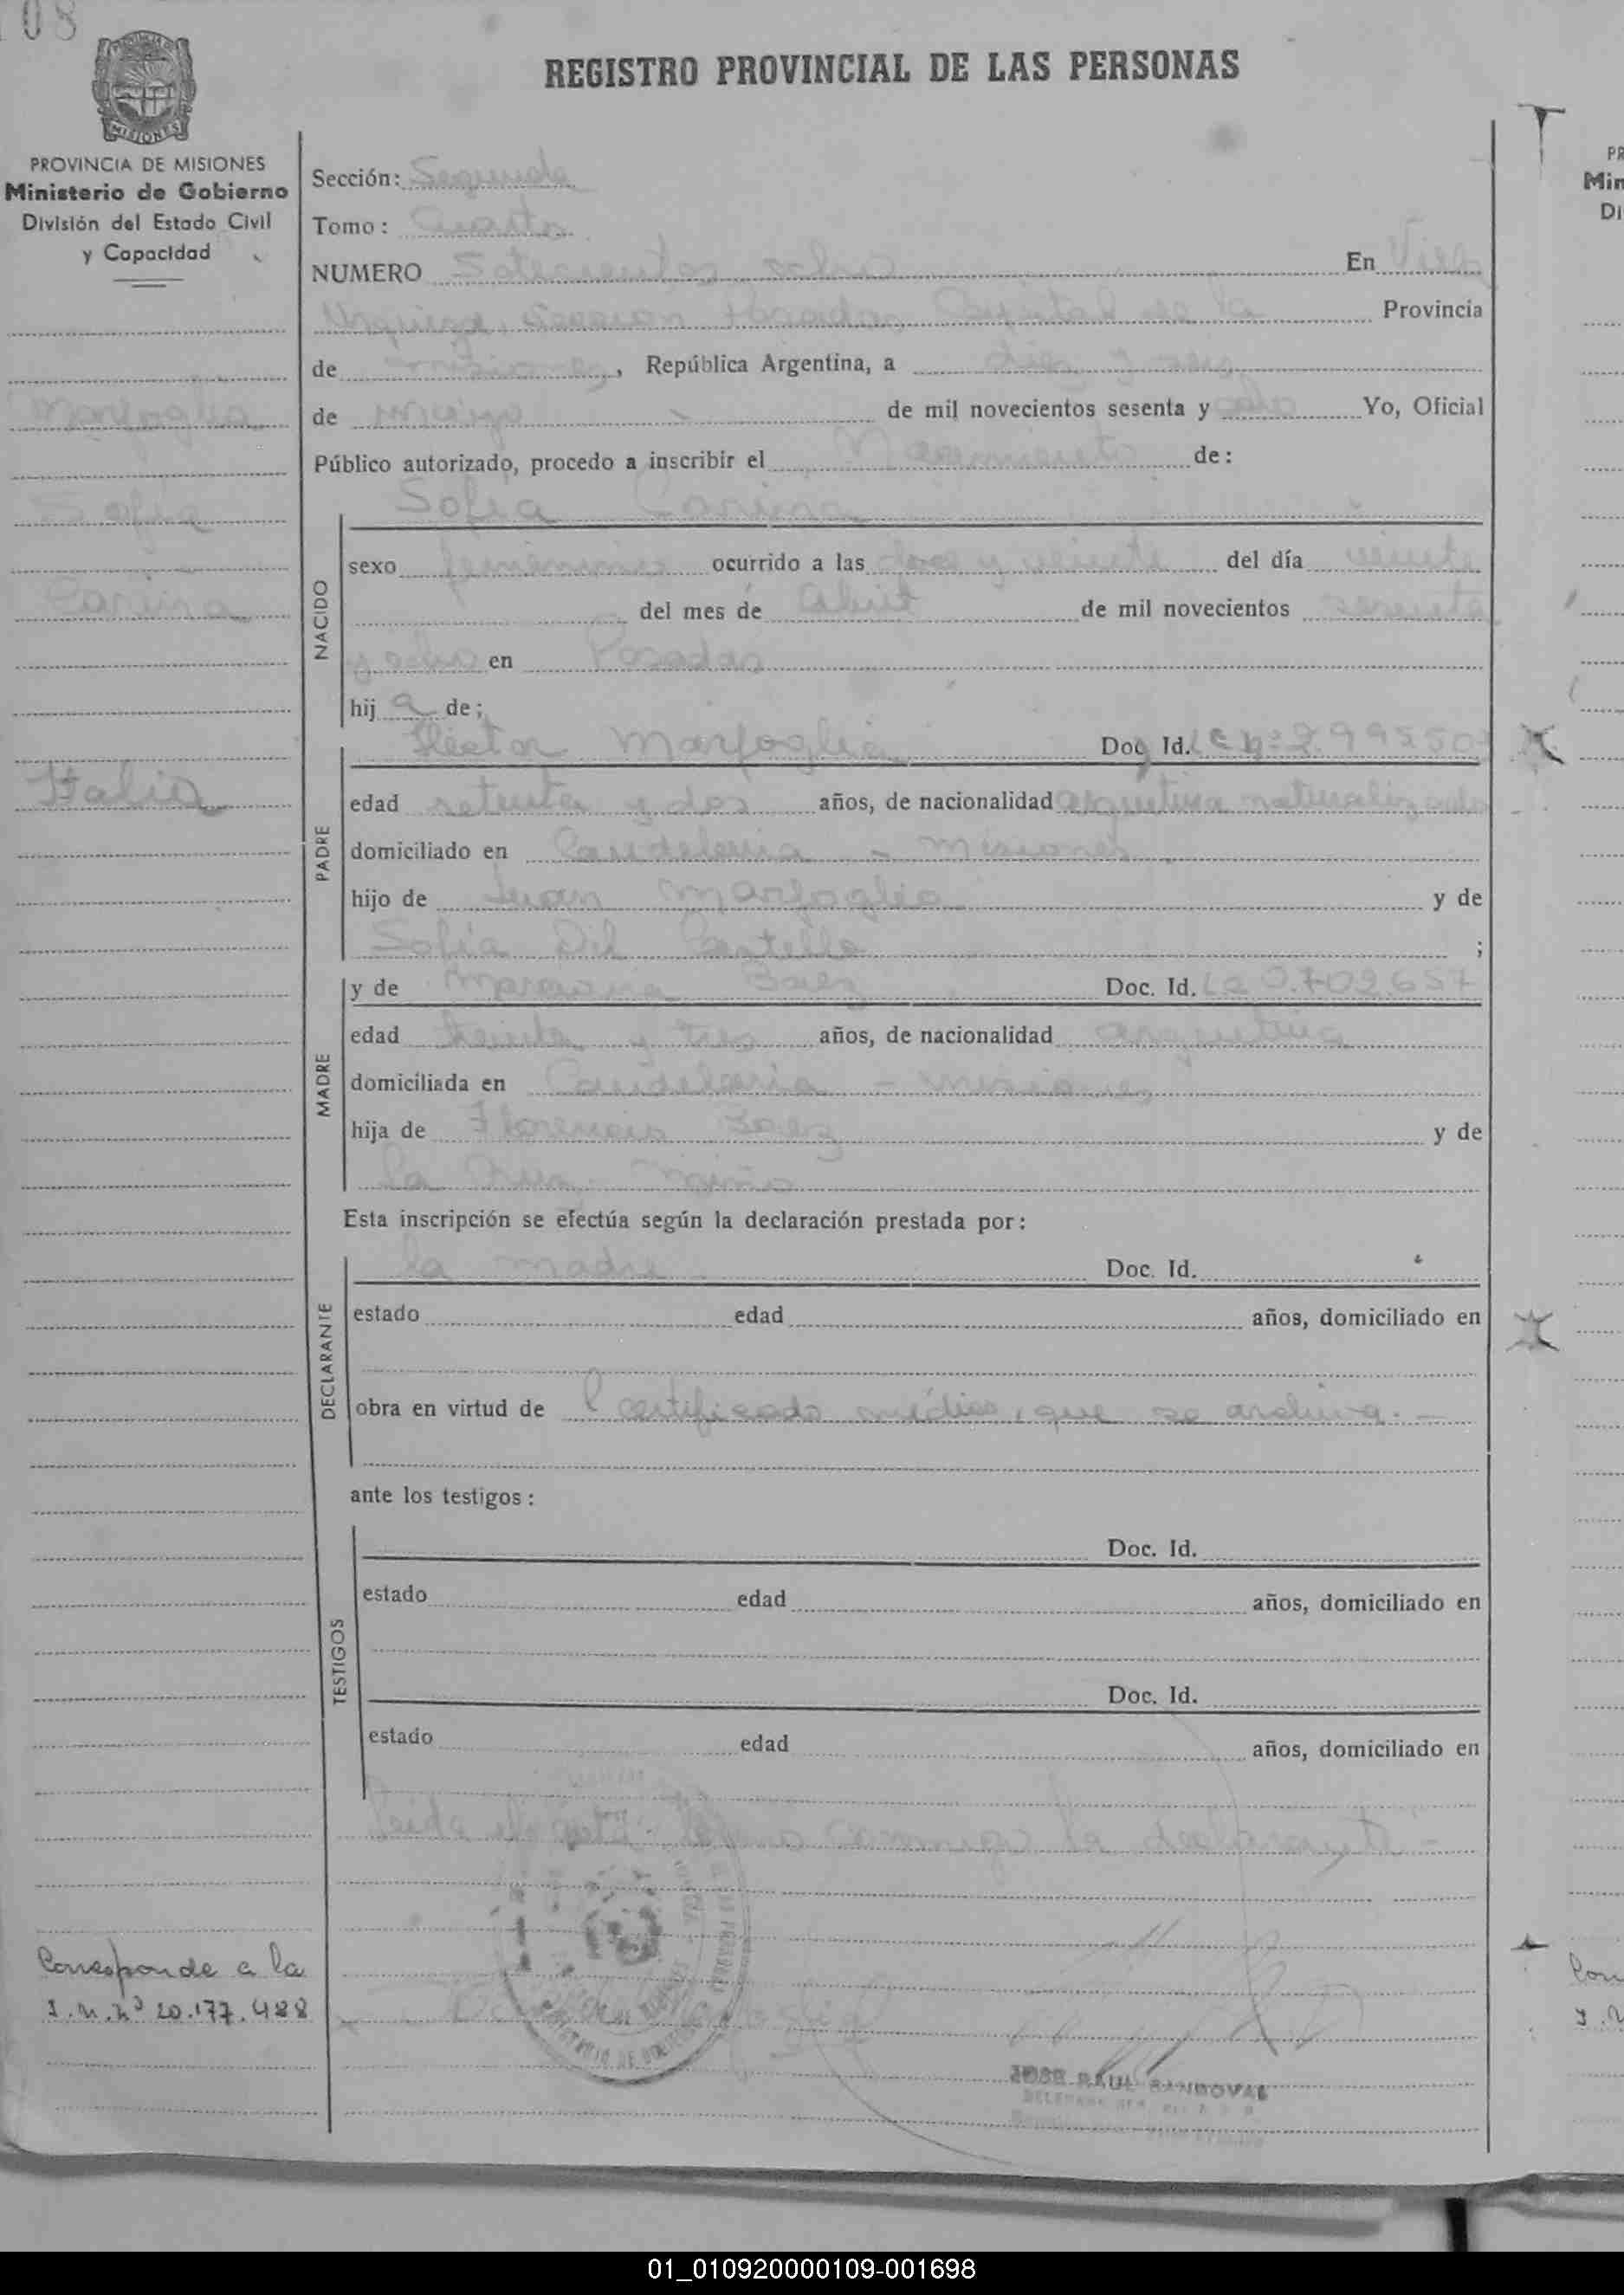 08
REGISTRO PROVINCIAL DE LAS PERSONAS
MISIONES
PROVINCIA DE MISIONES
Ministerio de Gobierno
División del Estado Civil
y Capacidad
Marfoglia
Sofia
Carina
Italia
Corresponde a la
I.M.Nº 20.177.488
Sección: Segunda
Tomo: Cuarto
NUMERO Setecientos ocho En Villa
Urquiza, Sección Posadas Capital de la Provincia
de Misiones, República Argentina, a diez y seis
de mayo de mil novecientos sesenta y ocho Yo, Oficial
Público autorizado, procedo a inscribir el Nacimiento de:
Sofia Carina
NACIDO
sexo femenino ocurrido a las doce y veinte del día veinte
del mes de Abril de mil novecientos sesenta
y ocho en Posadas
hij a de;
PADRE
Hector Marfoglia Doc Id.
edad setenta y dos años, de nacionalidad argentina naturalizado
domiciliado en Candelaria - Misiones
hijo de Juan Marfoglia y de
Sofia Del Castello ;
MADRE
y de Baez Doc. Id.
edad treinta y tres años, de nacionalidad argentina
domiciliada en Candelaria - Misiones
hija de Florencio Baez y de
la Cruz Miño
Esta inscripción se efectúa según la declaración prestada por:
DECLARANTE
la madre Doc. Id.
estado edad años, domiciliado en
obra en virtud de certificado médico, que se archiva.-
ante los testigos:
TESTIGOS
Doc. Id.
estado edad años, domiciliado en
Doc. Id.
estado edad años, domiciliado en
Leida el acta conmigo la declarante-
JOSE RAUL SANDOVAL
PR
Min
Di
01_010920000109-001698